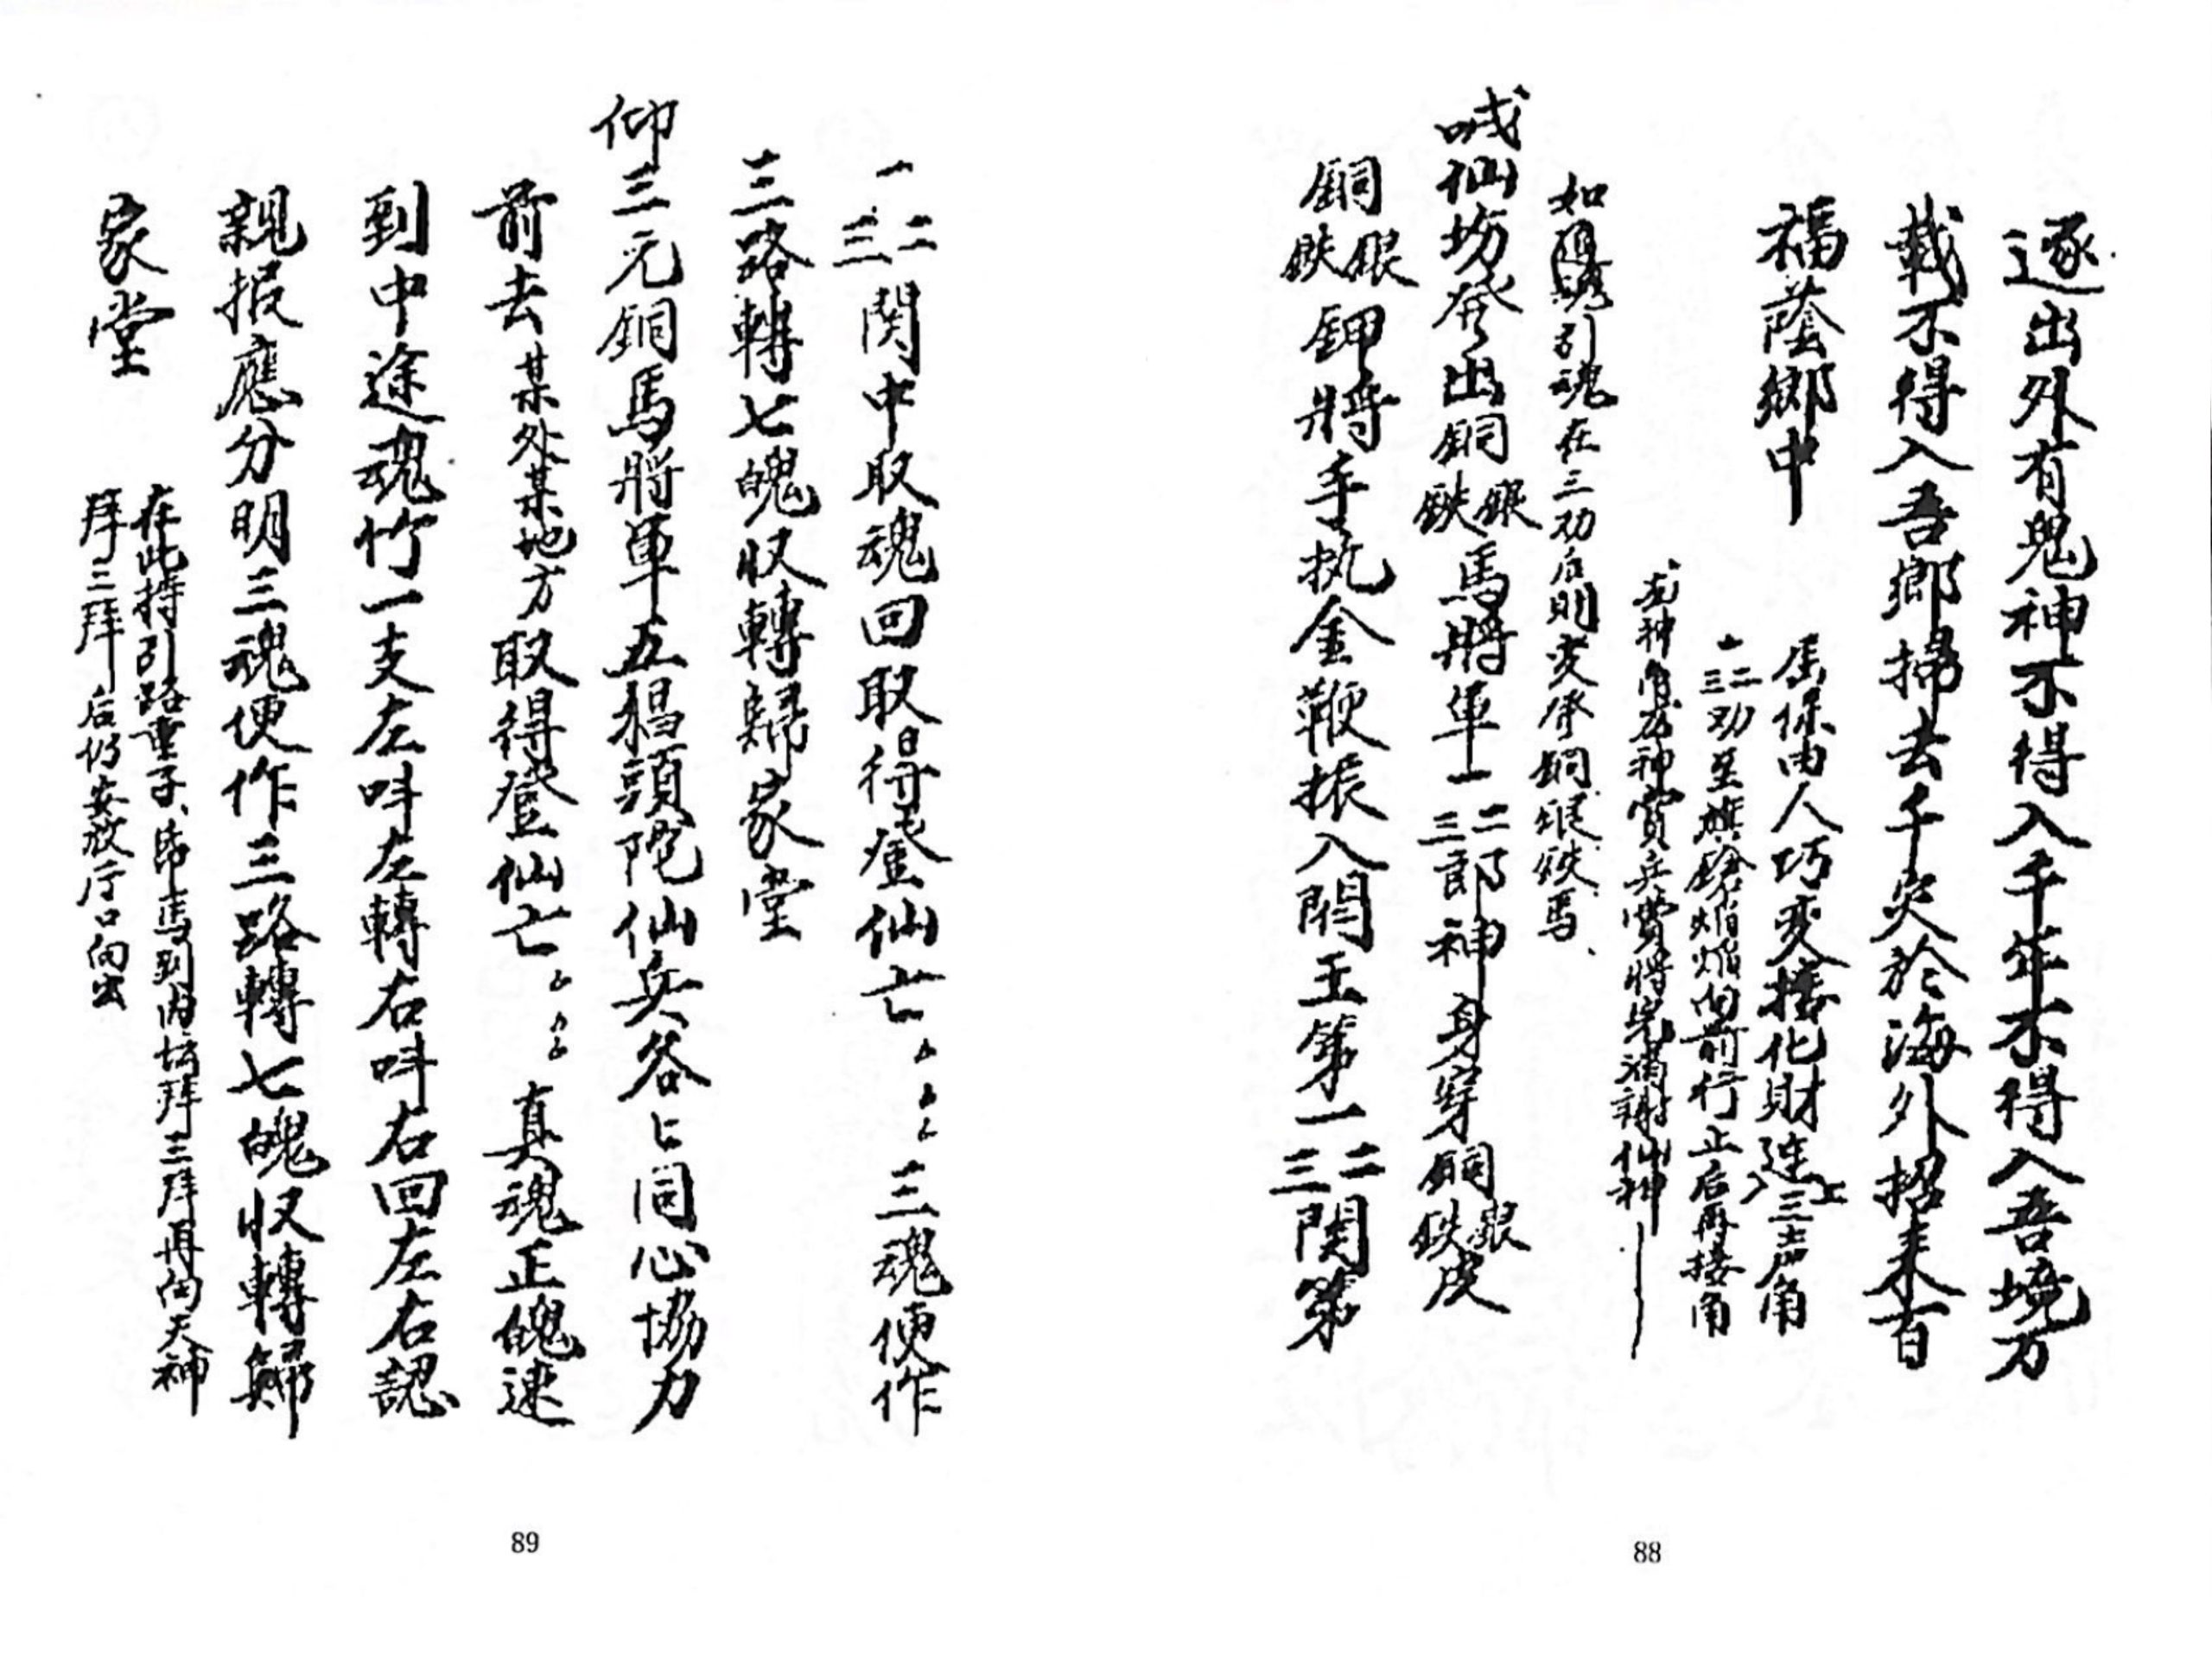 逐出外有鬼神不得入千年不得入吾境万
載不得入吾鄉掃去千災於海外招来百
福蔭鄉中
居保由人巧变接化財連上三声角
一二三功至旗鎗焰焰向前行止后再接角
龙神賞兵費將完满謝仙神
如引魂在三功后則变傣銅銀鉄馬
喊仙坊発出銅銀鉄馬將軍一二三郎神身穿銅銀鉄皮
銅銀鉄鉀將手执金鞭振入閻王第一二三関第
88
一二三関中取魂回取得登仙亡三魂便作
三路轉七魄収轉歸家堂
仰三元銅馬將軍五猖頭陀仙兵谷匕同心協力
前去某处某地方取得登仙亡真魂正魄速
到中途魂竹一支左呌左轉右呌右回左右認
親报應分明三魂便作三路轉七魄収轉歸
家堂
在此持引路童子、帋馬到内坛拜三拜再向天神
拜三拜后仍安放厅口向出
89